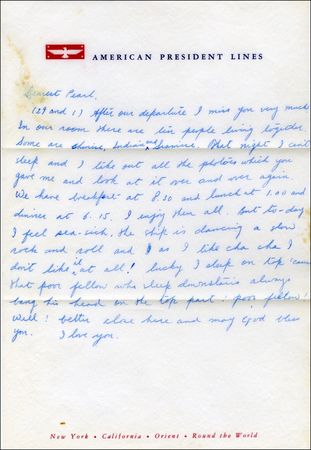 AMERICAN PRESIDENT LINES
Dearest Pearl,
(29 and 1) After our departure I miss you very much
In our room there are ten people living together.
Some are Chinese, Indian and Siamese. That night I can't
sleep and I take out all the photoes which you
gave me and look at it over and over again
We have breakfast at 8.30 and lunch at 1.00 and
dinner at 6.15. I enjoy them all. But to-day
I feel sea-sick, the ship is dancing a slow
rock and roll and I as I like cha cha I
don't like it at all! lucky I sleep on top 'cause
that poor fellow who sleep downstairs always
bang his head on the top part: poor fellow!
Well! better close here and may God bless
you. I love you.
New York • California • Orient • Round the World